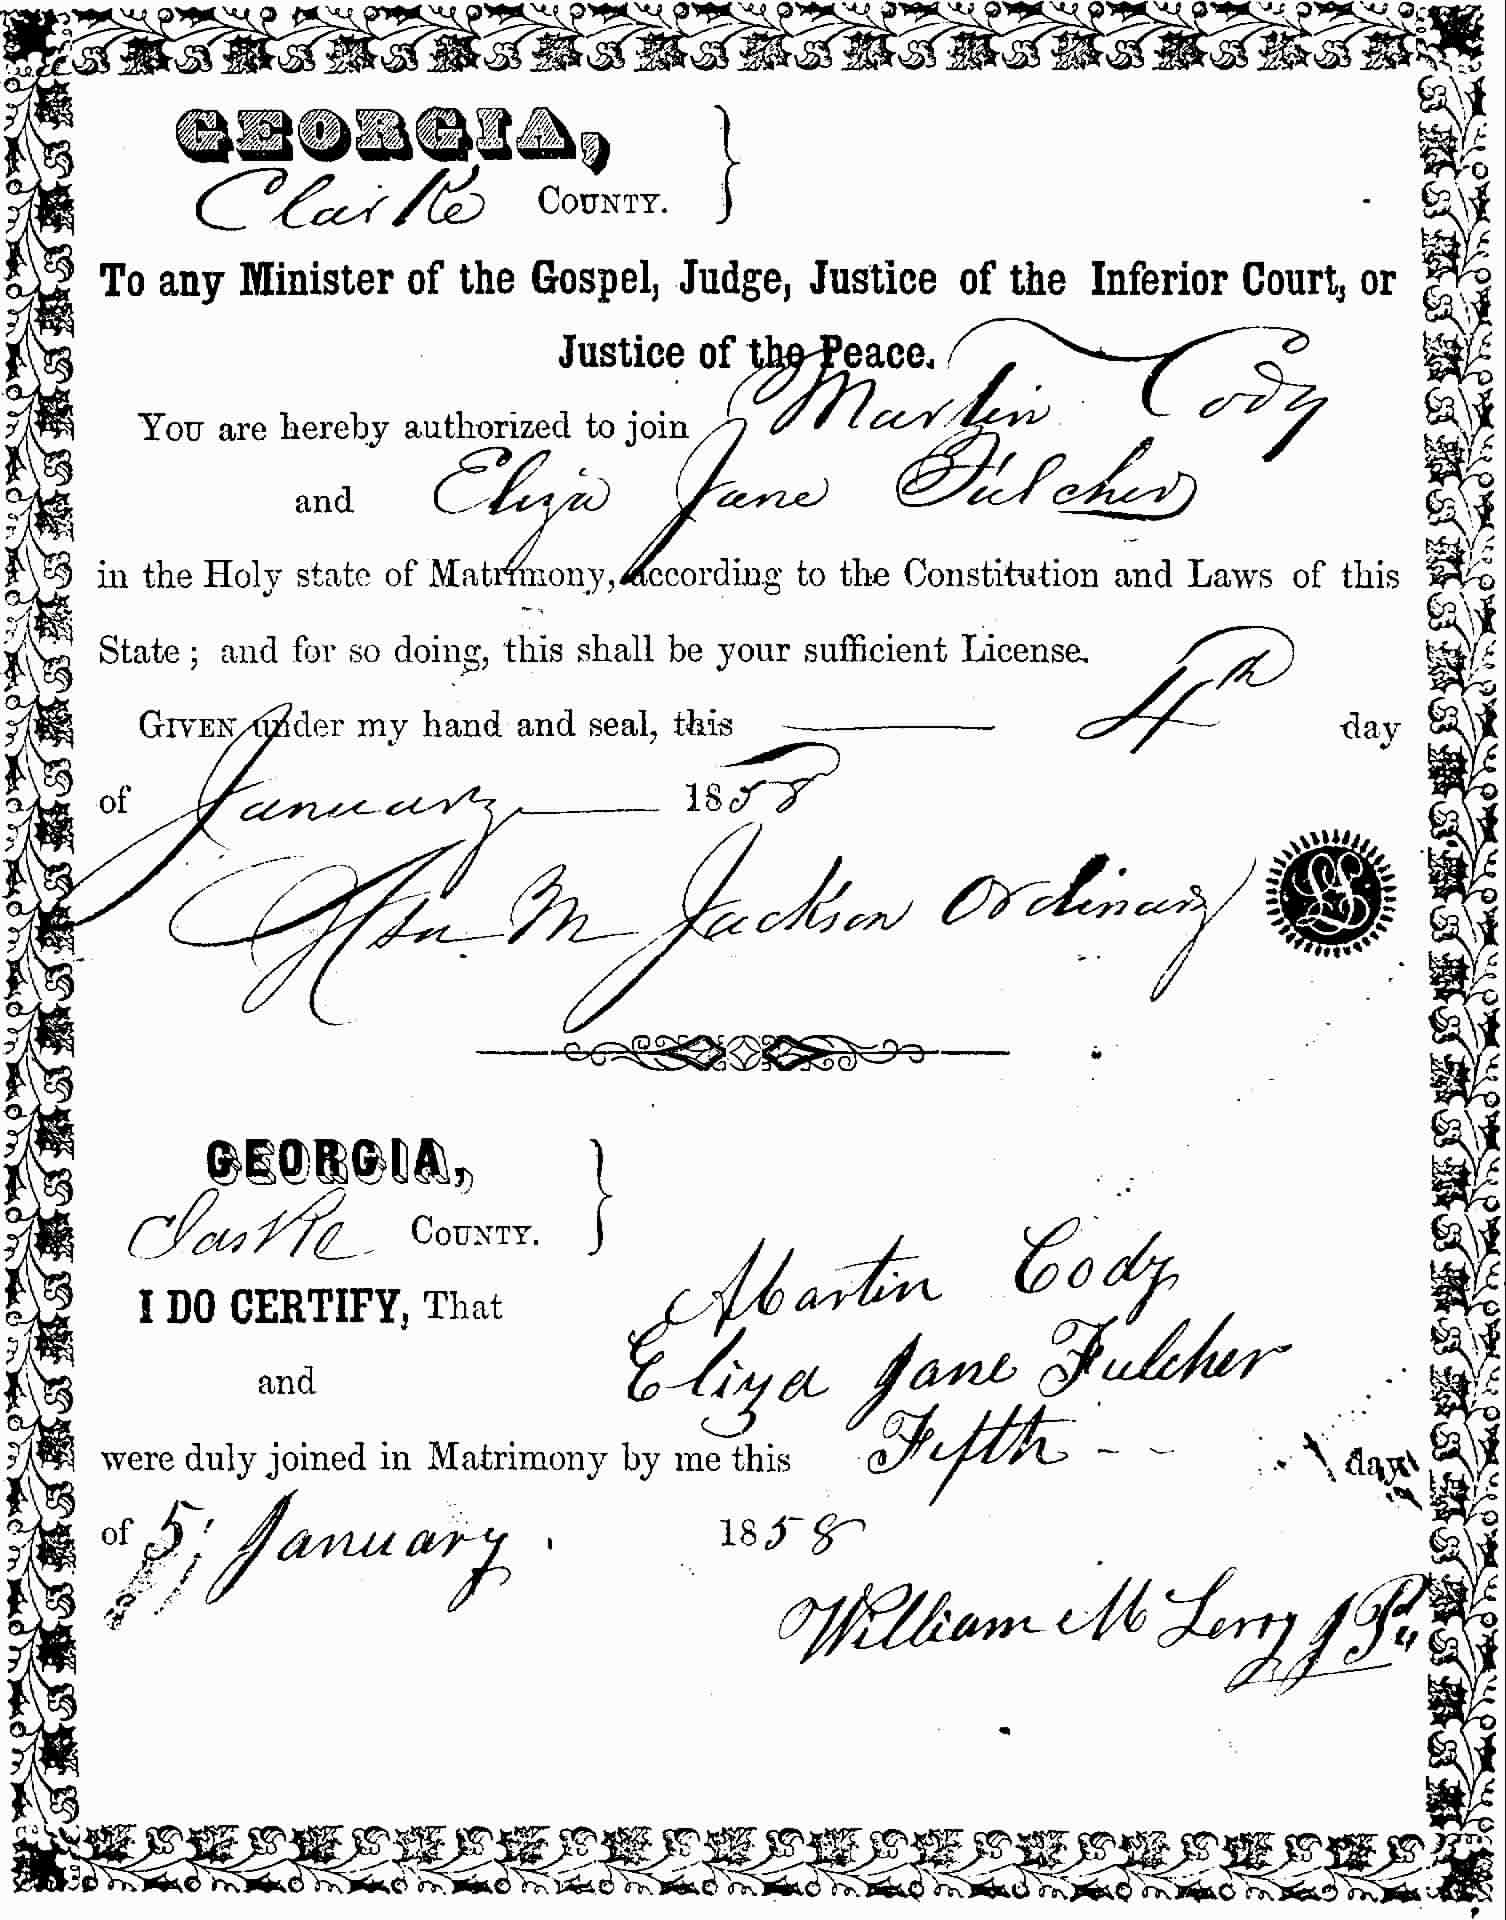 GEORGIA,
Clarke COUNTY.
To any Minister of the Gospel, Judge, Justice of the Inferior Court, or
Justice of the Peace.
YOU are hereby authorized to join Martin Cody
and Eliza Jane Fulcher
in the Holy state of Matrimony, according to the Constitution and Laws of this
State; and for so doing, this shall be your sufficient License.
GIVEN under my hand and seal, this 4th day
of January 1858
Asa M Jackson Ordinary
LS
GEORGIA,
Clarke COUNTY.
I DO CERTIFY, That Martin Cody
and Eliza Jane Fulcher
were duly joined in Matrimony by me this Fifth - - day
of 5 January. 1858
William M Lerry J P